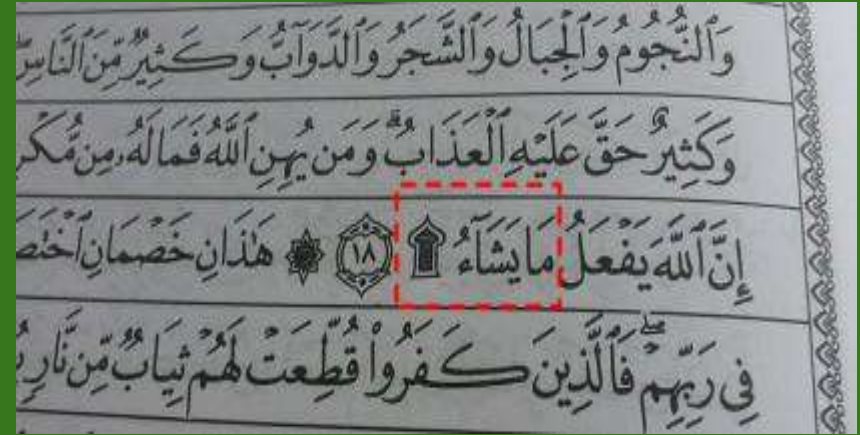 وَٱلنُّجُومُ وَٱلْجِبَالُ وَٱلشَّجَرُ وَٱلدَّوَآبُّ وَكَثِيرٌ مِّنَ ٱلنَّاسِۖ
وَكَثِيرٌ حَقَّ عَلَيْهِ ٱلْعَذَابُۗ وَمَن يُهِنِ ٱللَّهُ فَمَا لَهُۥ مِن
إِنَّ ٱللَّهَ يَفْعَلُ مَا يَشَآءُ ۩ ١٨ ۞ هَٰذَانِ خَصْمَانِ
فِى رَبِّهِمْۖ فَٱلَّذِينَ كَفَرُوا۟ قُطِّعَتْ لَهُمْ ثِيَابٌ مِّن نَّارٍ